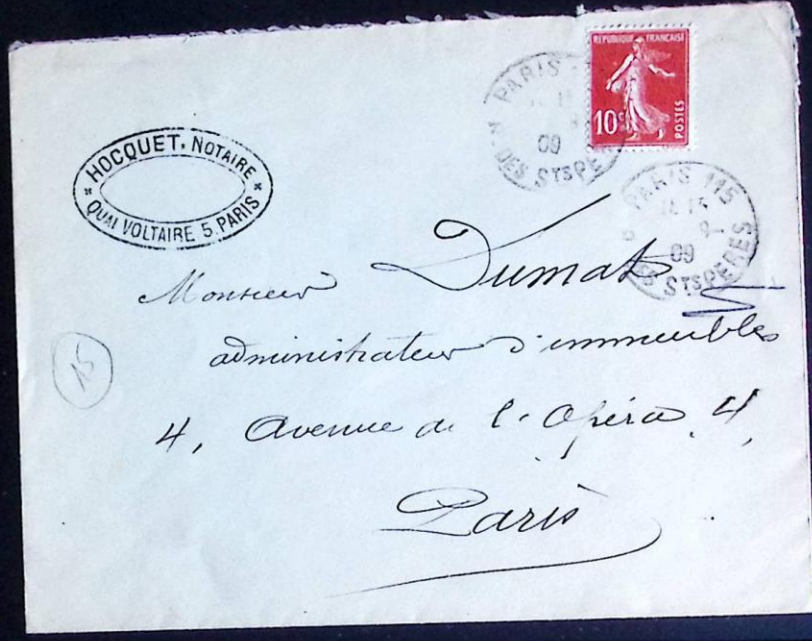 HOCQUET, NOTAIRE
QUAI VOLTAIRE 5. PARIS
REPUBLIQUE FRANÇAISE
10c
POSTES
PARIS
09
DES STS PE
PARIS 115
09
STS PERES
Monsieur Dumats
administrateur d'immeubles
4, Avenue de l'Opéra, 4,
Paris
15